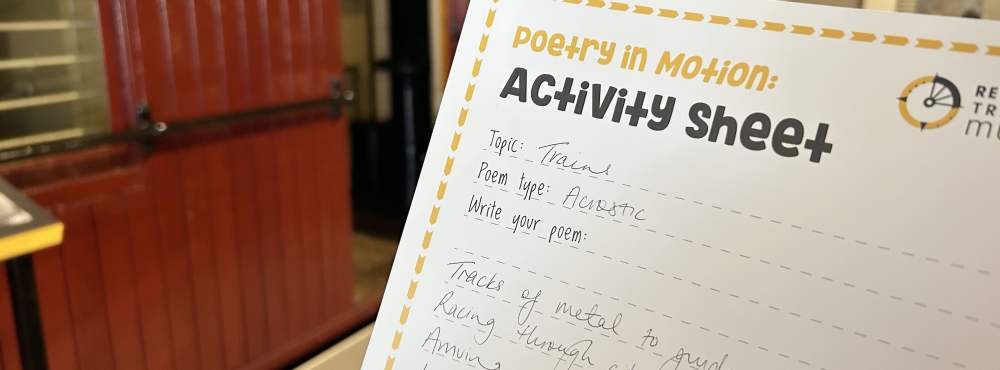 Poetry in Motion:
Activity Sheet
RE
TR
Topic: Trains
Poem type: Acrostic
Write your poem:
Tracks of metal to
Racing through